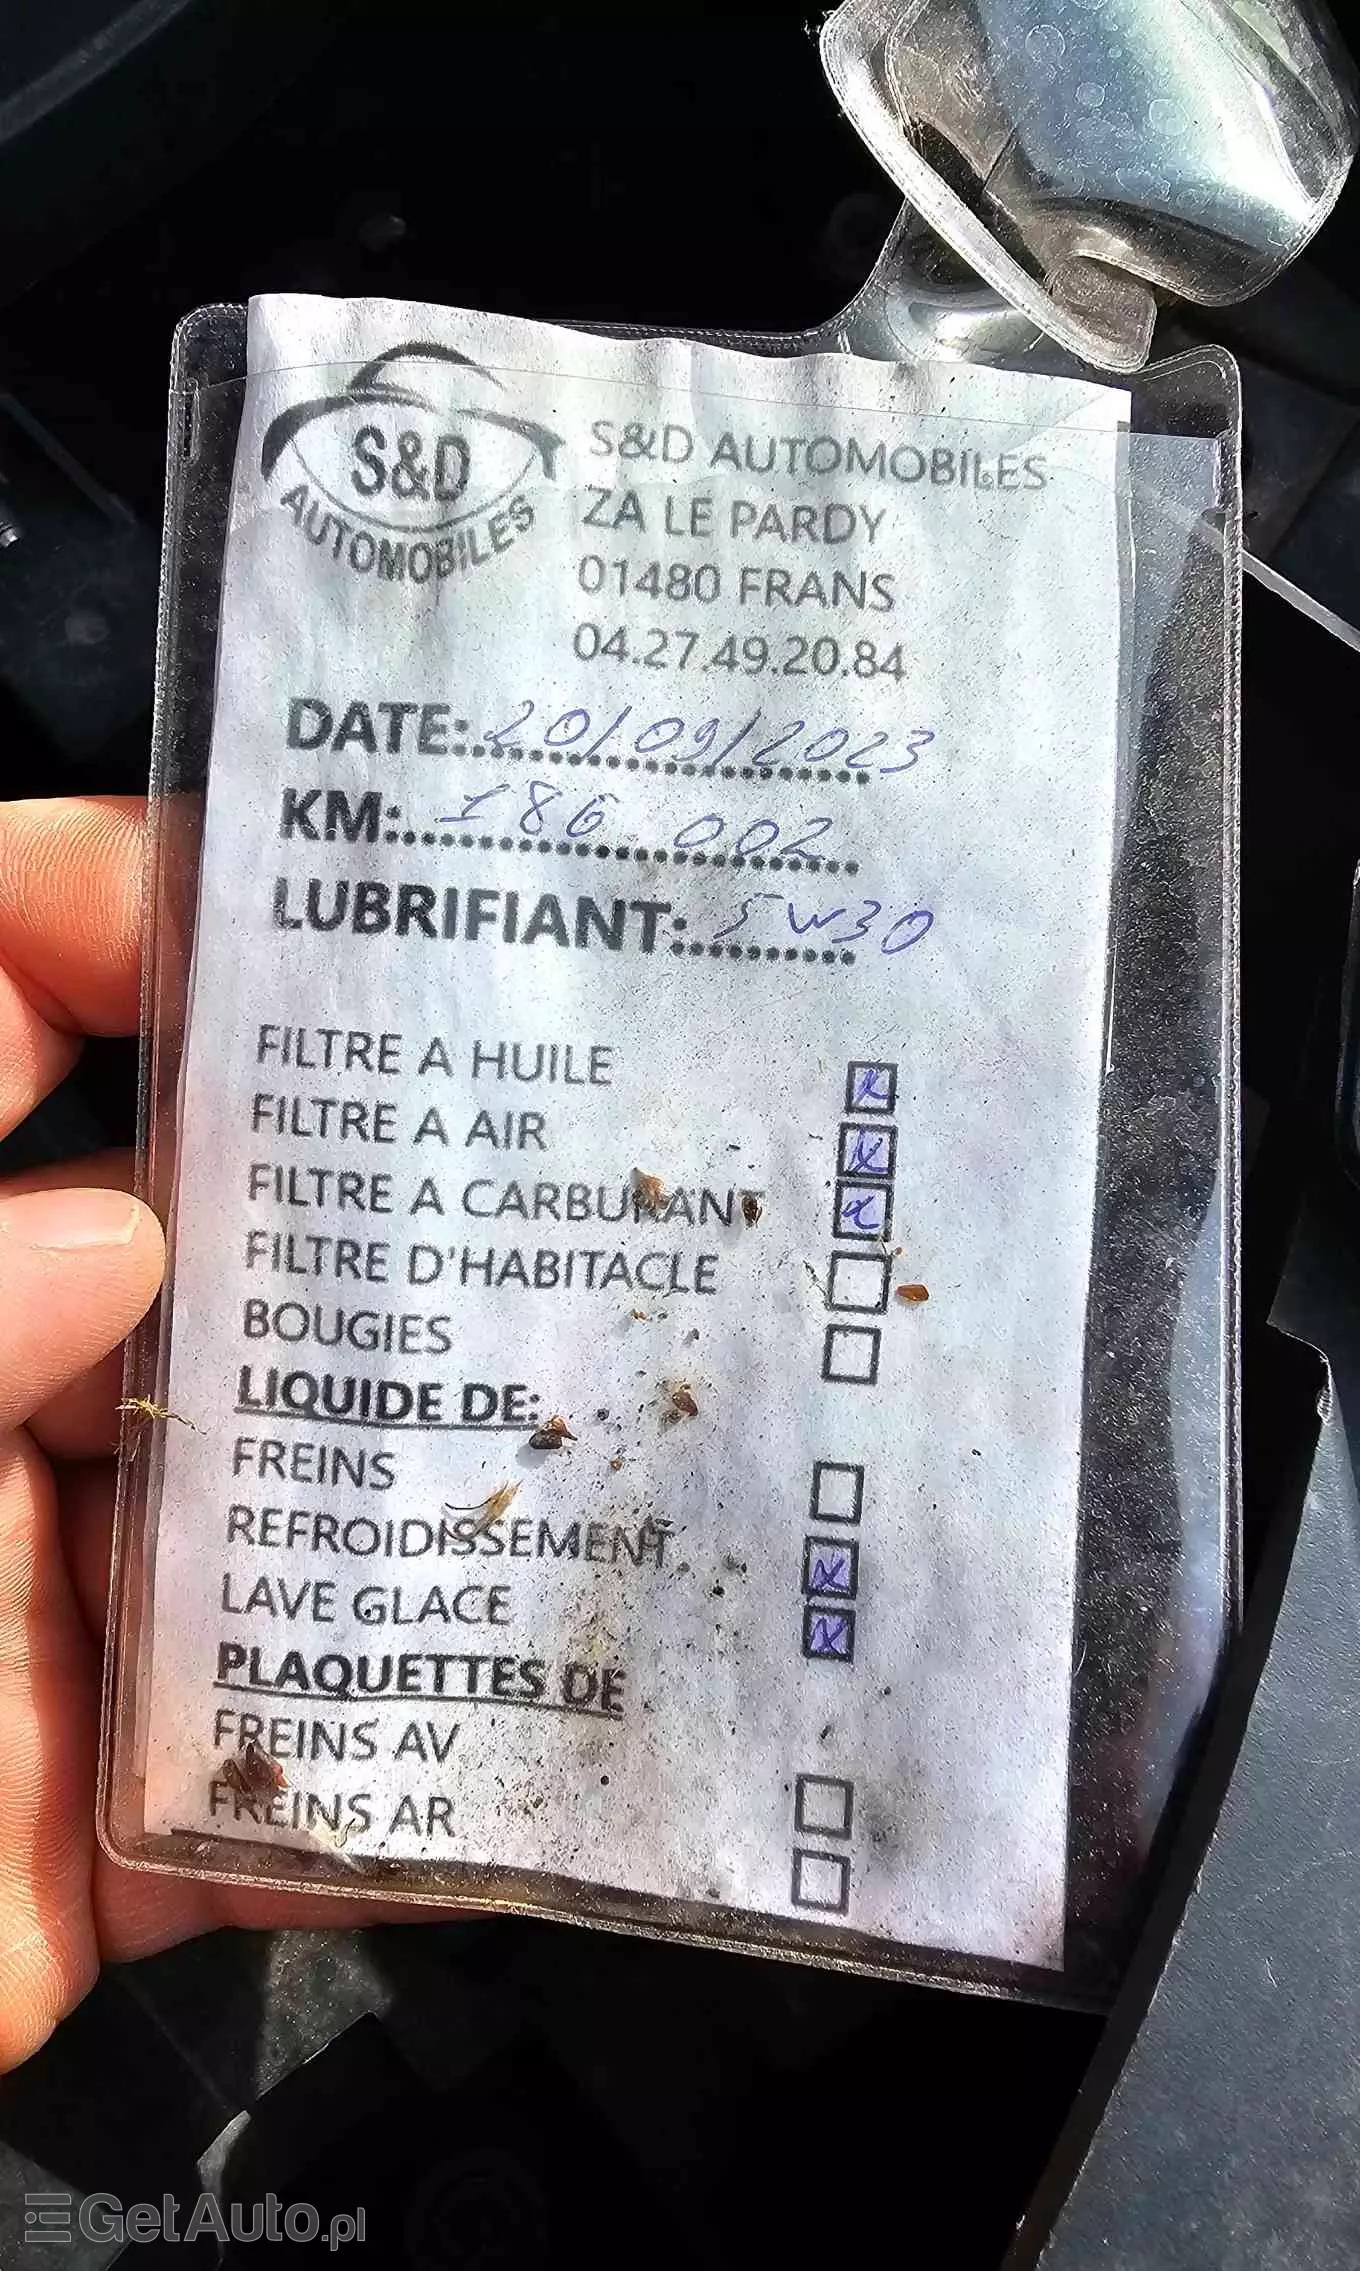 S&D
AUTOMOBILES
S&D AUTOMOBILES
ZA LE PARDY
01480 FRANS
04.27.49.20.84
DATE: 20/09/2023
KM: 186 002
LUBRIFIANT: 5W30
FILTRE A HUILE x
FILTRE A AIR x
FILTRE A CARBURANT x
FILTRE D'HABITACLE
BOUGIES
LIQUIDE DE:
FREINS
REFROIDISSEMENT x
LAVE GLACE x
PLAQUETTES DE
FREINS AV
FREINS AR
GetAuto.pl